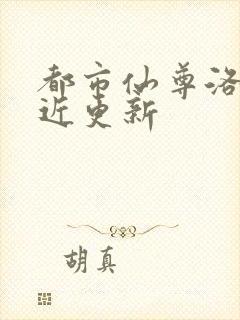 都市仙尊洛
近更新
胡真